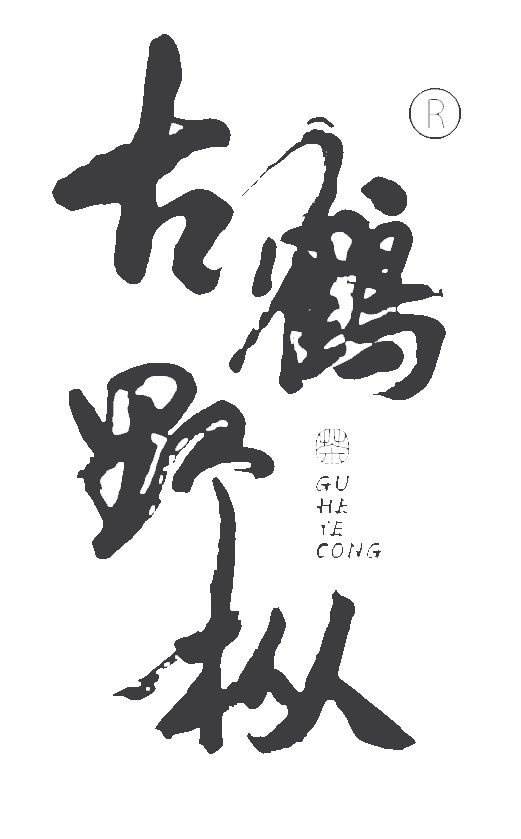 古鹤
®
野
枞
GU
HE
YE
CONG